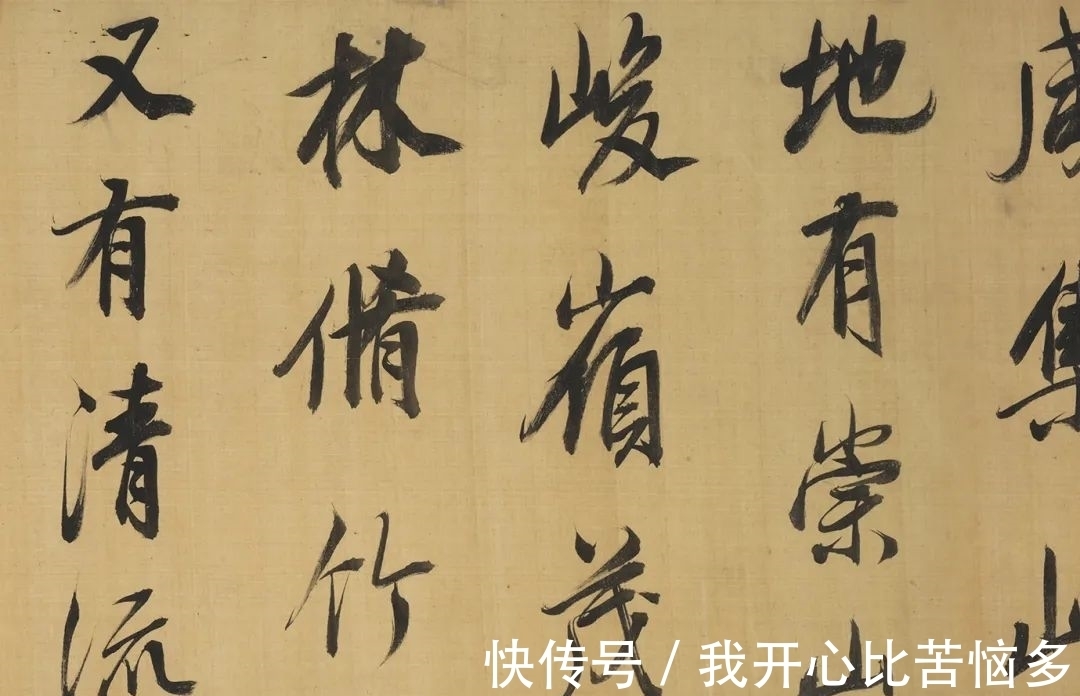 咸集
地有崇山
峻嶺茂
林脩竹
又有清流
快传号 / 我开心比苦恼多